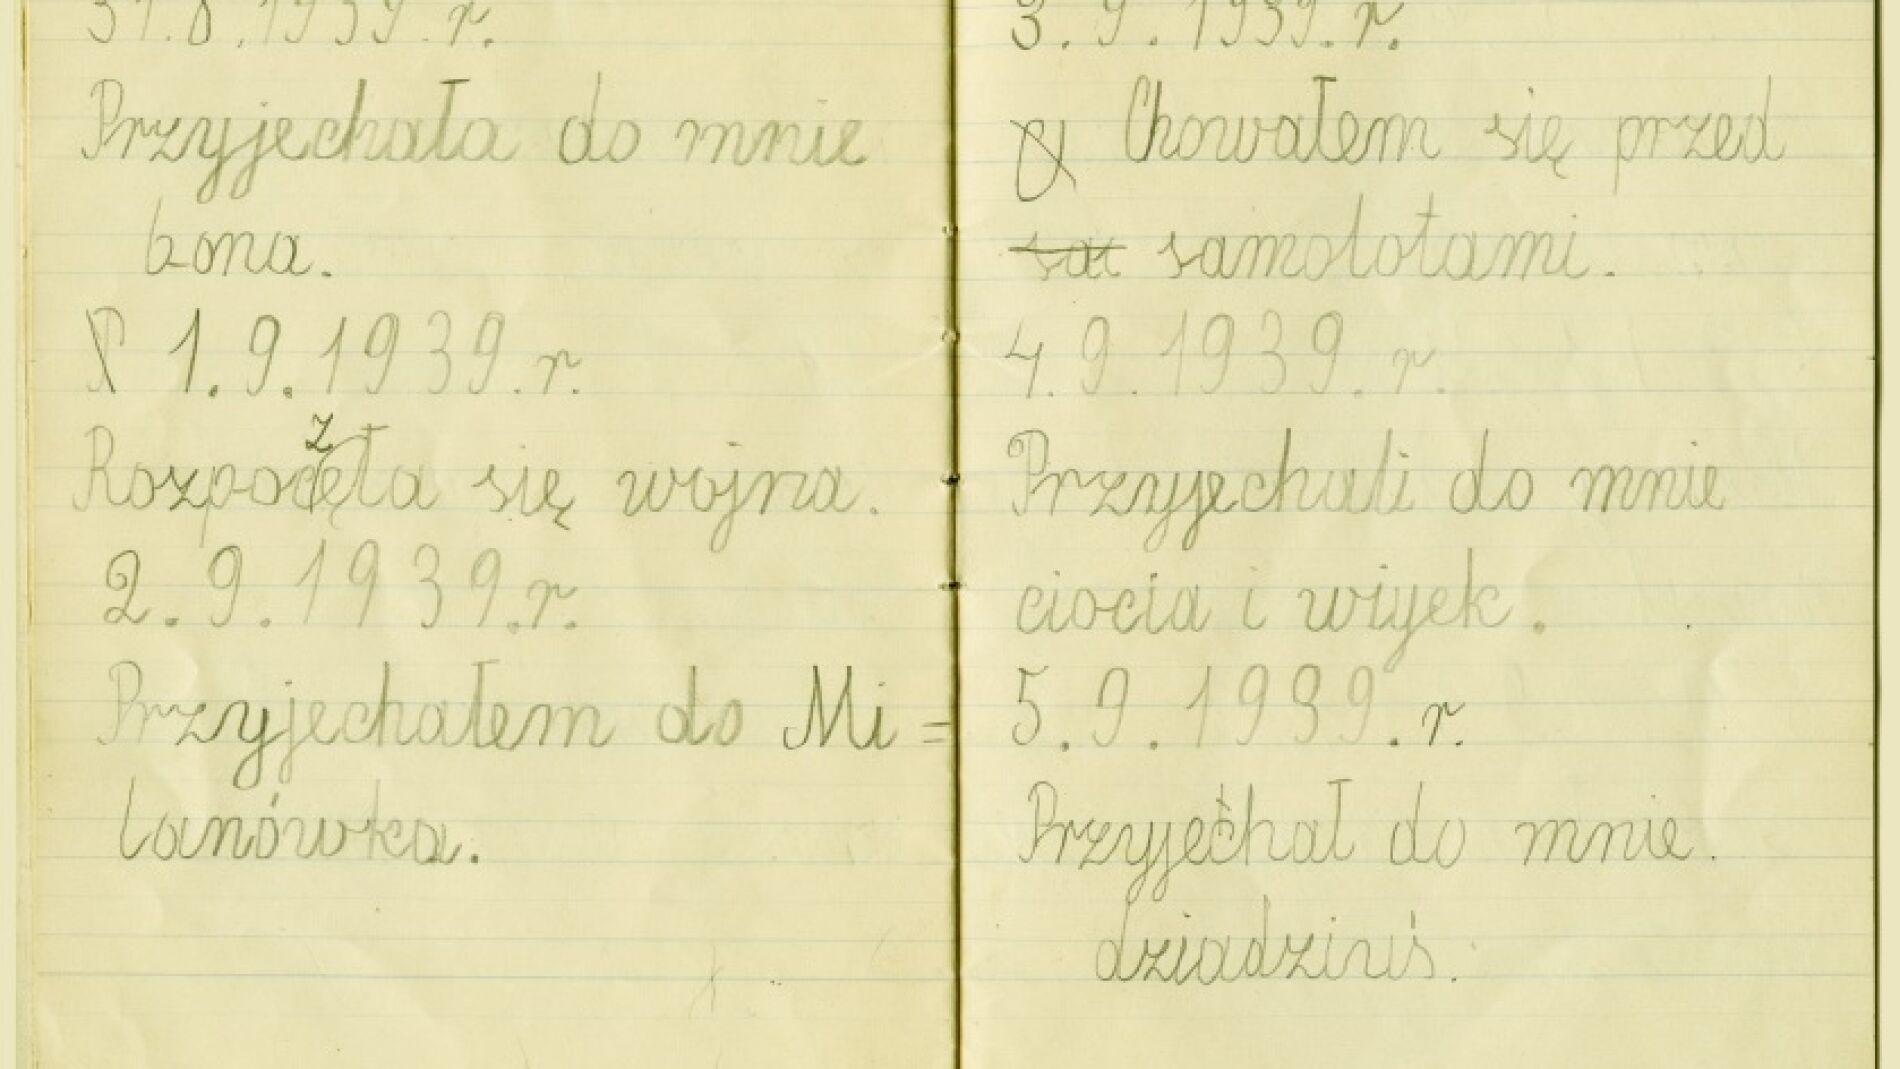 31.8.1939.r.
Przyjechała do mnie
bona.
1.9.1939.r.
Rozpoczęła się wojna.
2.9.1939.r.
Przyjechałem do Mi=
lanówka.
3.9.1939.r.
Chowałem się przed
samolotami.
4.9.1939.r.
Przyjechali do mnie
ciocia i wujek.
5.9.1939.r.
Przyjechał do mnie.
dziadziuś.